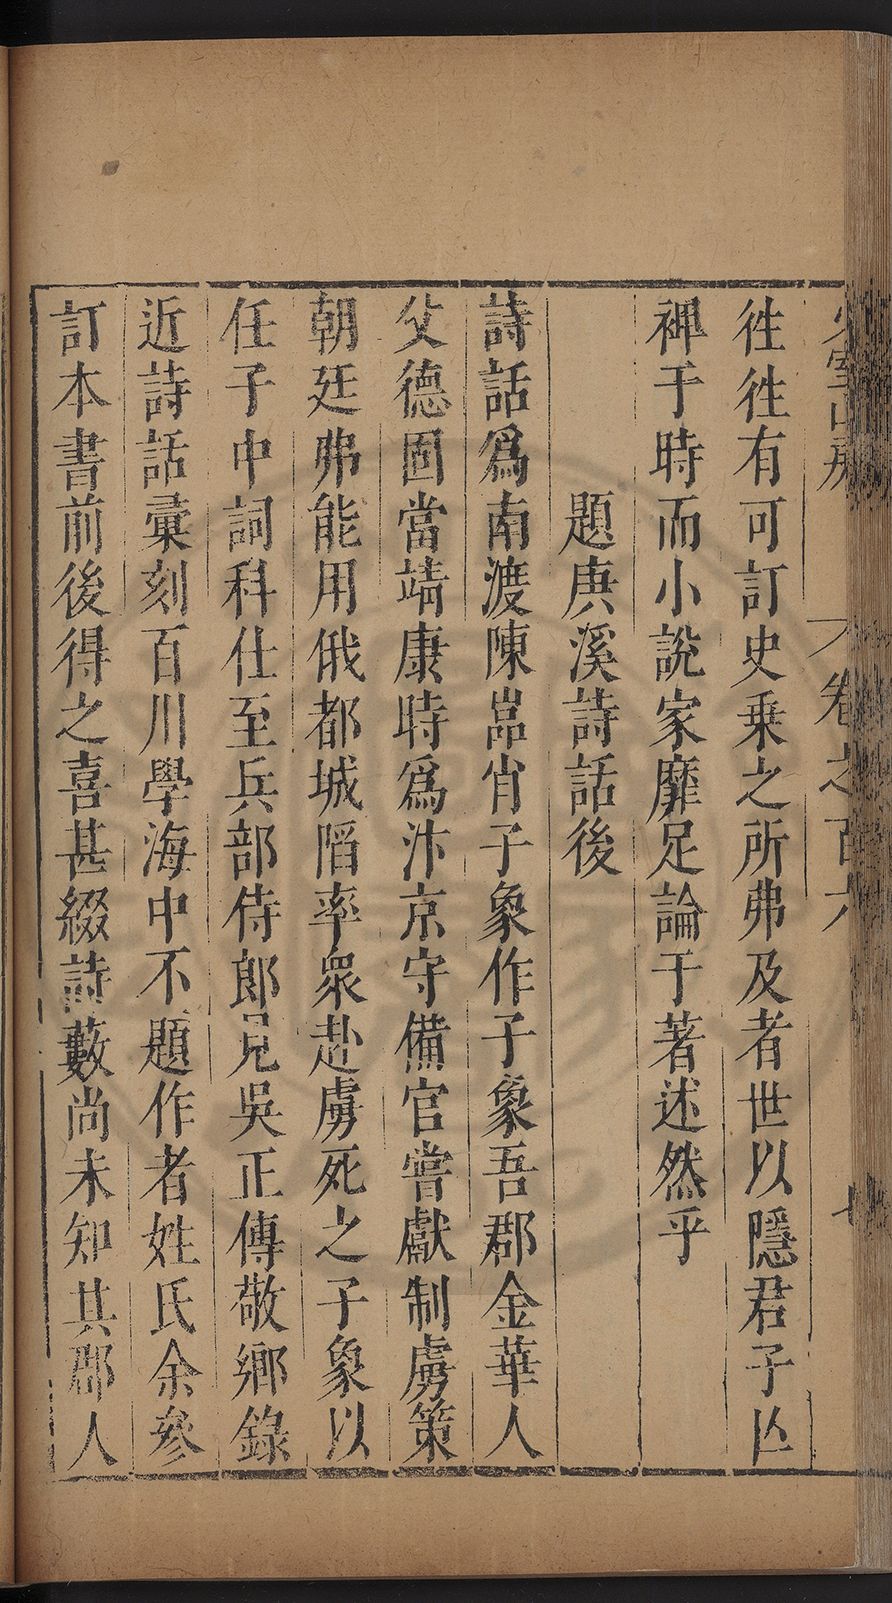 少室山房 卷之百六 七
徃徃有可訂史乗之所弗及者世以隱君子亾
裨于時而小說家靡足論于著述然乎
題庚溪詩話後
詩話爲南渡陳嵓肖子象作子象吾郡金華人
父德固當靖康時爲汴京守備官嘗獻制虜策
朝廷弗能用俄都城陷率衆赴虜死之子象以
任子中詞科仕至兵部侍郎見吳正傳敬鄉錄
近詩話彙刻百川學海中不題作者姓氏余參
訂本書前後得之喜甚綴詩藪尚未知其郡人